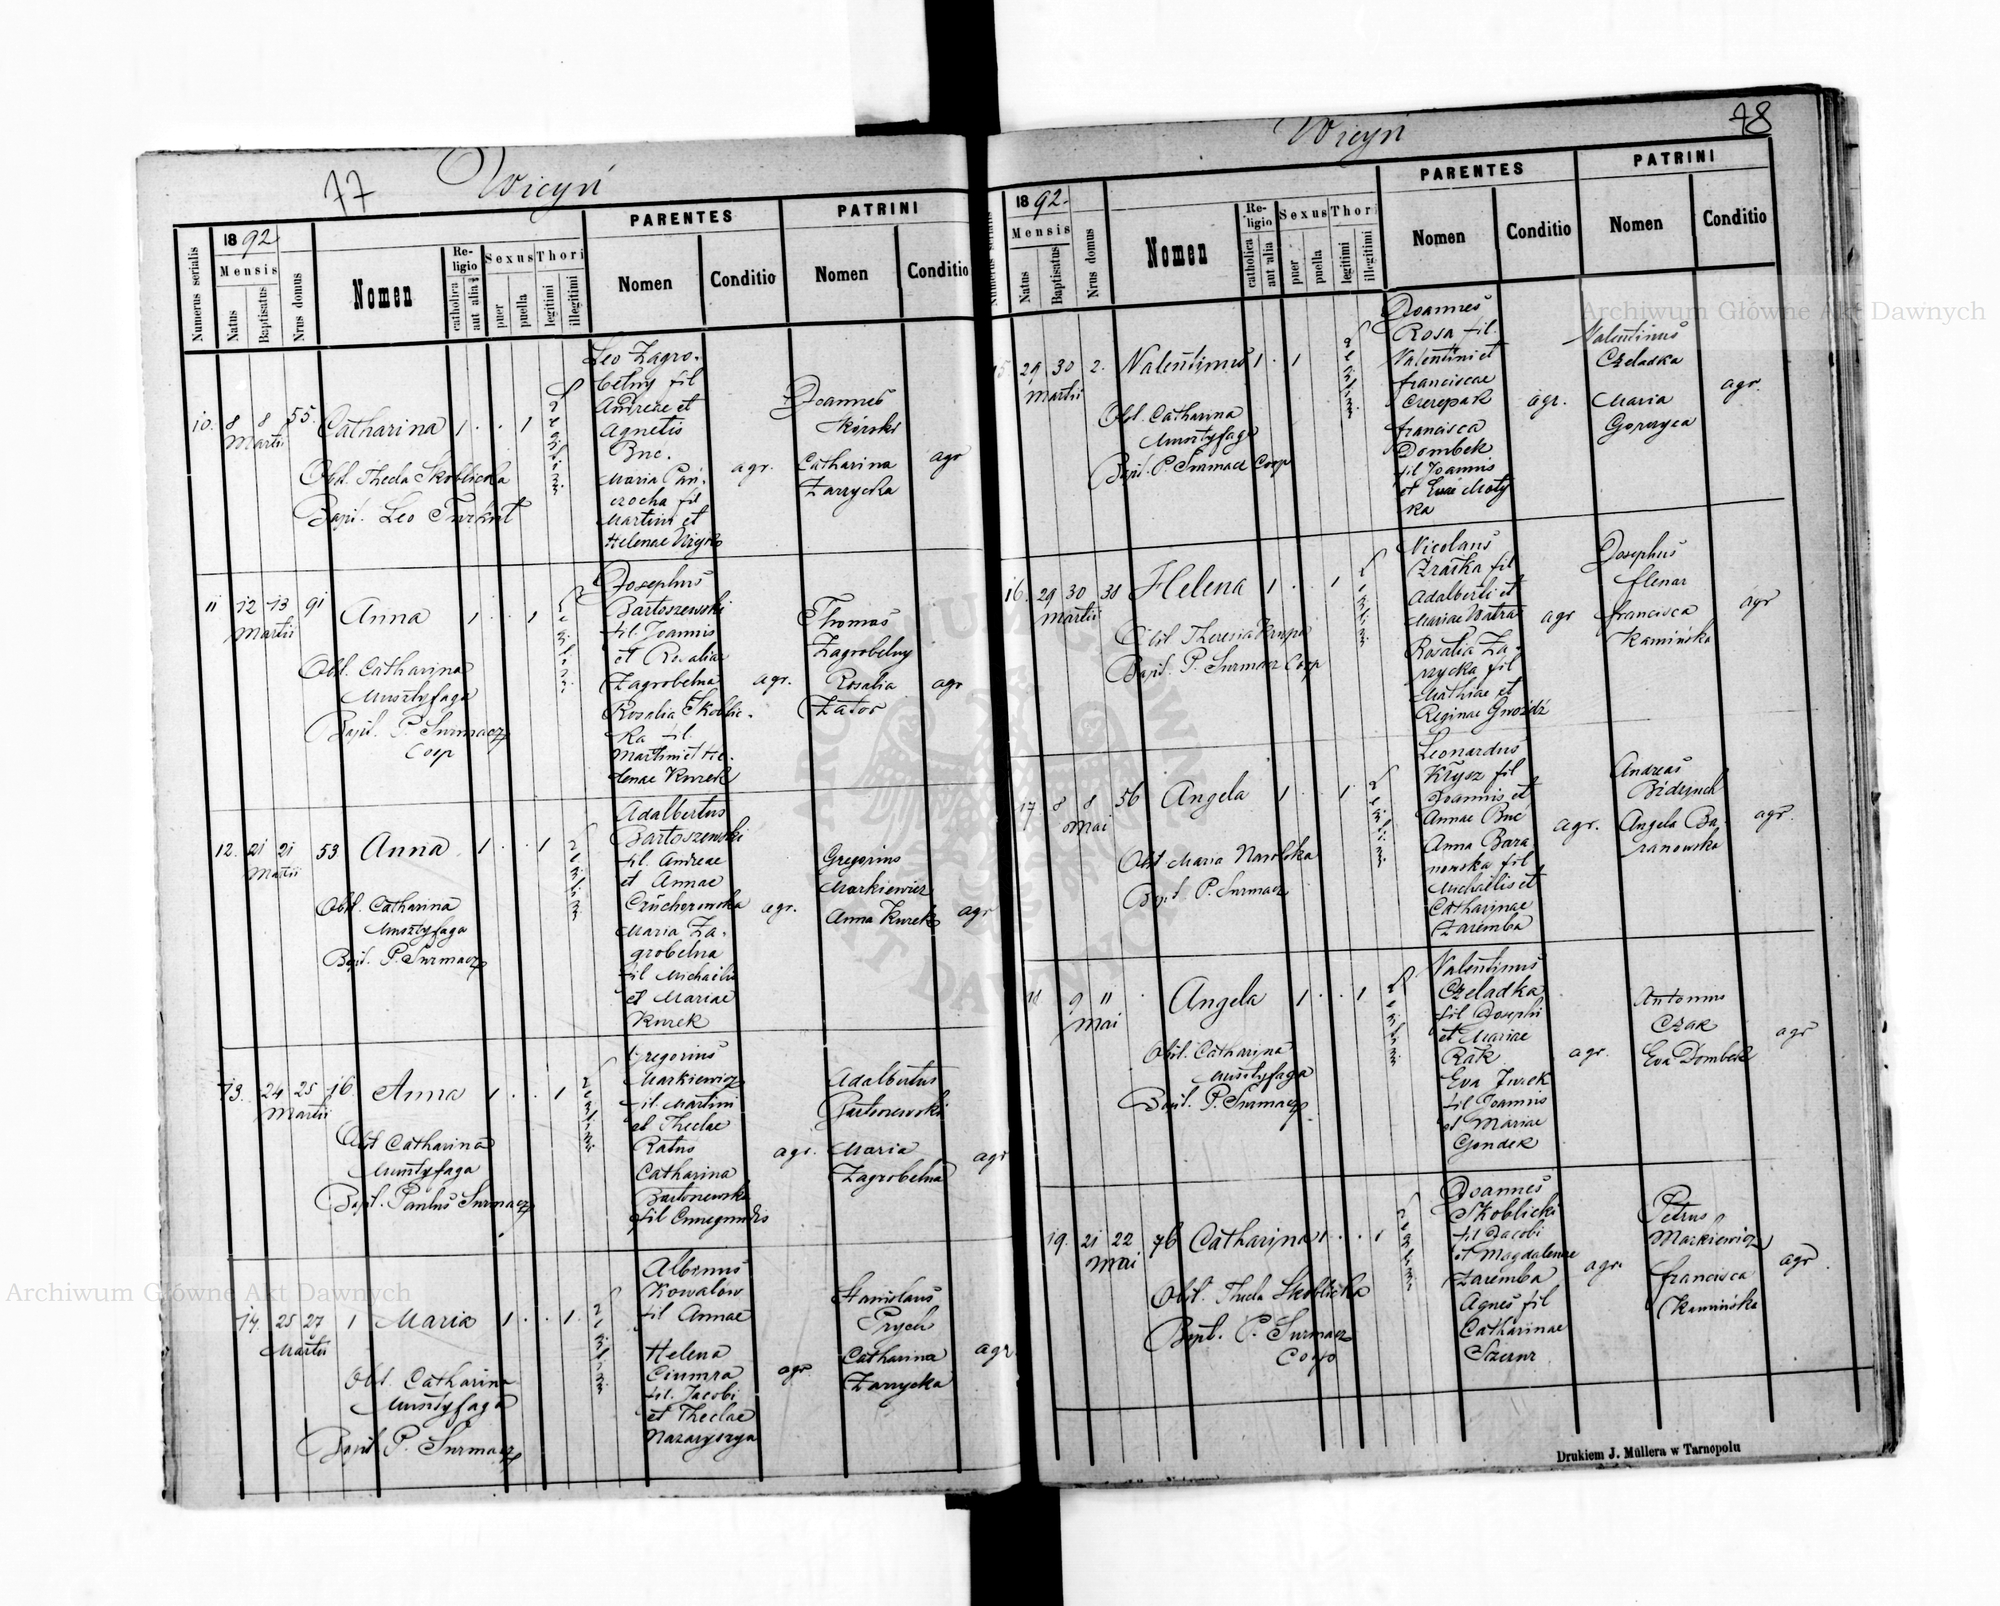 77 Wicyń
1892
Numerus serialis
Mensis
Natus
Baptisatus
Nrus domus
Nomen
Religio
catholica
aut alia
Sexus
puer
puella
Thori
legitimi
illegitimi
PARENTES
Nomen
Conditio
PATRINI
Nomen
Conditio
10. 8 8 55. Catharina 1 . . 1
Martii
Obst. Thecla Skoblicka
Bapt. Leo Turkiet
Leo Zagro-
belny fil
Andreae et
Agnetis
Buc.
Maria Pan-
czocha fil
Martini et
Helenae
agr.
Joannes
Skirski
Catharina
Zarzycka
agr
11 12 13 91 Anna 1 . . 1
Martii
Obst. Catharina
Musztyfaga
Bapt. P. Surmacz
Coop
Josephus
Bartoszewski
fil. Joannis
et Rosaliae
Zagrobelna
Rosalia Skoblic-
ka fil.
Martini et He-
lenae Kurek
agr.
Thomas
Zagrobelny
Rosalia
Zator
agr
12. 21 21 53 Anna 1 . . 1
Martii
Obst. Catharina
Musztyfaga
Bapt. P. Surmacz
Adalbertus
Bartoszewski
fil. Andreae
et Annae
Maria Za-
grobelna
fil Michaelis
et Mariae
Kurek
agr.
Gregorius
Markiewicz
Anna Kurek
agr
13. 24 25 16. Anna 1 . . 1
Martii
Obst Catharina
Musztyfaga
Bapt. Paulus Surmacz
Gregorius
Markiewicz
fil. Martini
et Theclae
Ratus
Catharina
Bartoszewska
fil Cunegundis
agr.
Adalbertus
Bartoszewski
Maria
Zagrobelna
agr
14. 25 27 1 Maria 1 . . 1.
Martii
Obst. Catharina
Musztyfaga
Bapt. P. Surmacz
Albinus
Kowalow
fil Annae
Helena
Ciumra
fil. Jacobi
et Theclae
agr
Stanislaus
Prych
Catharina
Zarzycka
agr.
Wicyń 78
1892.
Numerus serialis
Mensis
Natus
Baptisatus
Nrus domus
Nomen
Religio
catholica
aut alia
Sexus
puer
puella
Thori
legitimi
illegitimi
PARENTES
Nomen
Conditio
PATRINI
Nomen
Conditio
15 29 30 2. Valentinus 1 . 1
Martii
Obst. Catharina
Musztyfaga
Bapt. P. Surmacz Coop
Joannes
Rosa fil.
Valentini et
Franciscae
Czerepak
Francisca
Dombek
fil Joannis
et Evae Moty
ka
agr.
Valentinus
Czeladka
Maria
agr.
16. 29 30 38 Helena 1 . . 1
Martii
Obst Theresia Krupa
Bapt. P. Surmacz Coop
Nicolaus
fil
Adalberti et
Mariae Watras
Rosalia Za-
rzycka fil
Mathiae et
Reginae Gwozdz
agr
Josephus
Flenar
Francisca
Kaminska
agr
17. 8 8 56 Angela 1 . . 1.
Mai
Obst Maria
Bapt P. Surmacz
Leonardus
Krysz fil
Joannis et
Annae Buc
Anna Bara
nowska fil
Michaelis et
Catharinae
Zaremba
agr.
Andreas
Angela Ba-
ranowska
agr.
18 9 11 . Angela 1 . . 1
Mai
Obst. Catharina
Musztyfaga
Bapt. P. Surmacz
Valentinus
Czeladka
fil Josephi
et Mariae
Rak
Eva Turek
fil Joannis
et Mariae
Gondek
agr.
Antonius
Czak
Eva Dombek
agr
19. 21 22 76 Catharina 1 . . 1
Mai
Obst. Thecla Skoblicka
Bapt. P. Surmacz
Coop
Joannes
Skoblicki
fil Jacobi
et Magdalenae
Zaremba
Agnes fil
Catharinae
agr.
Petrus
Markiewicz
Francisca
Kaminska
agr
Drukiem J. Müllera w Tarnopolu
Archiwum Główne Akt Dawnych
Archiwum Główne Akt Dawnych